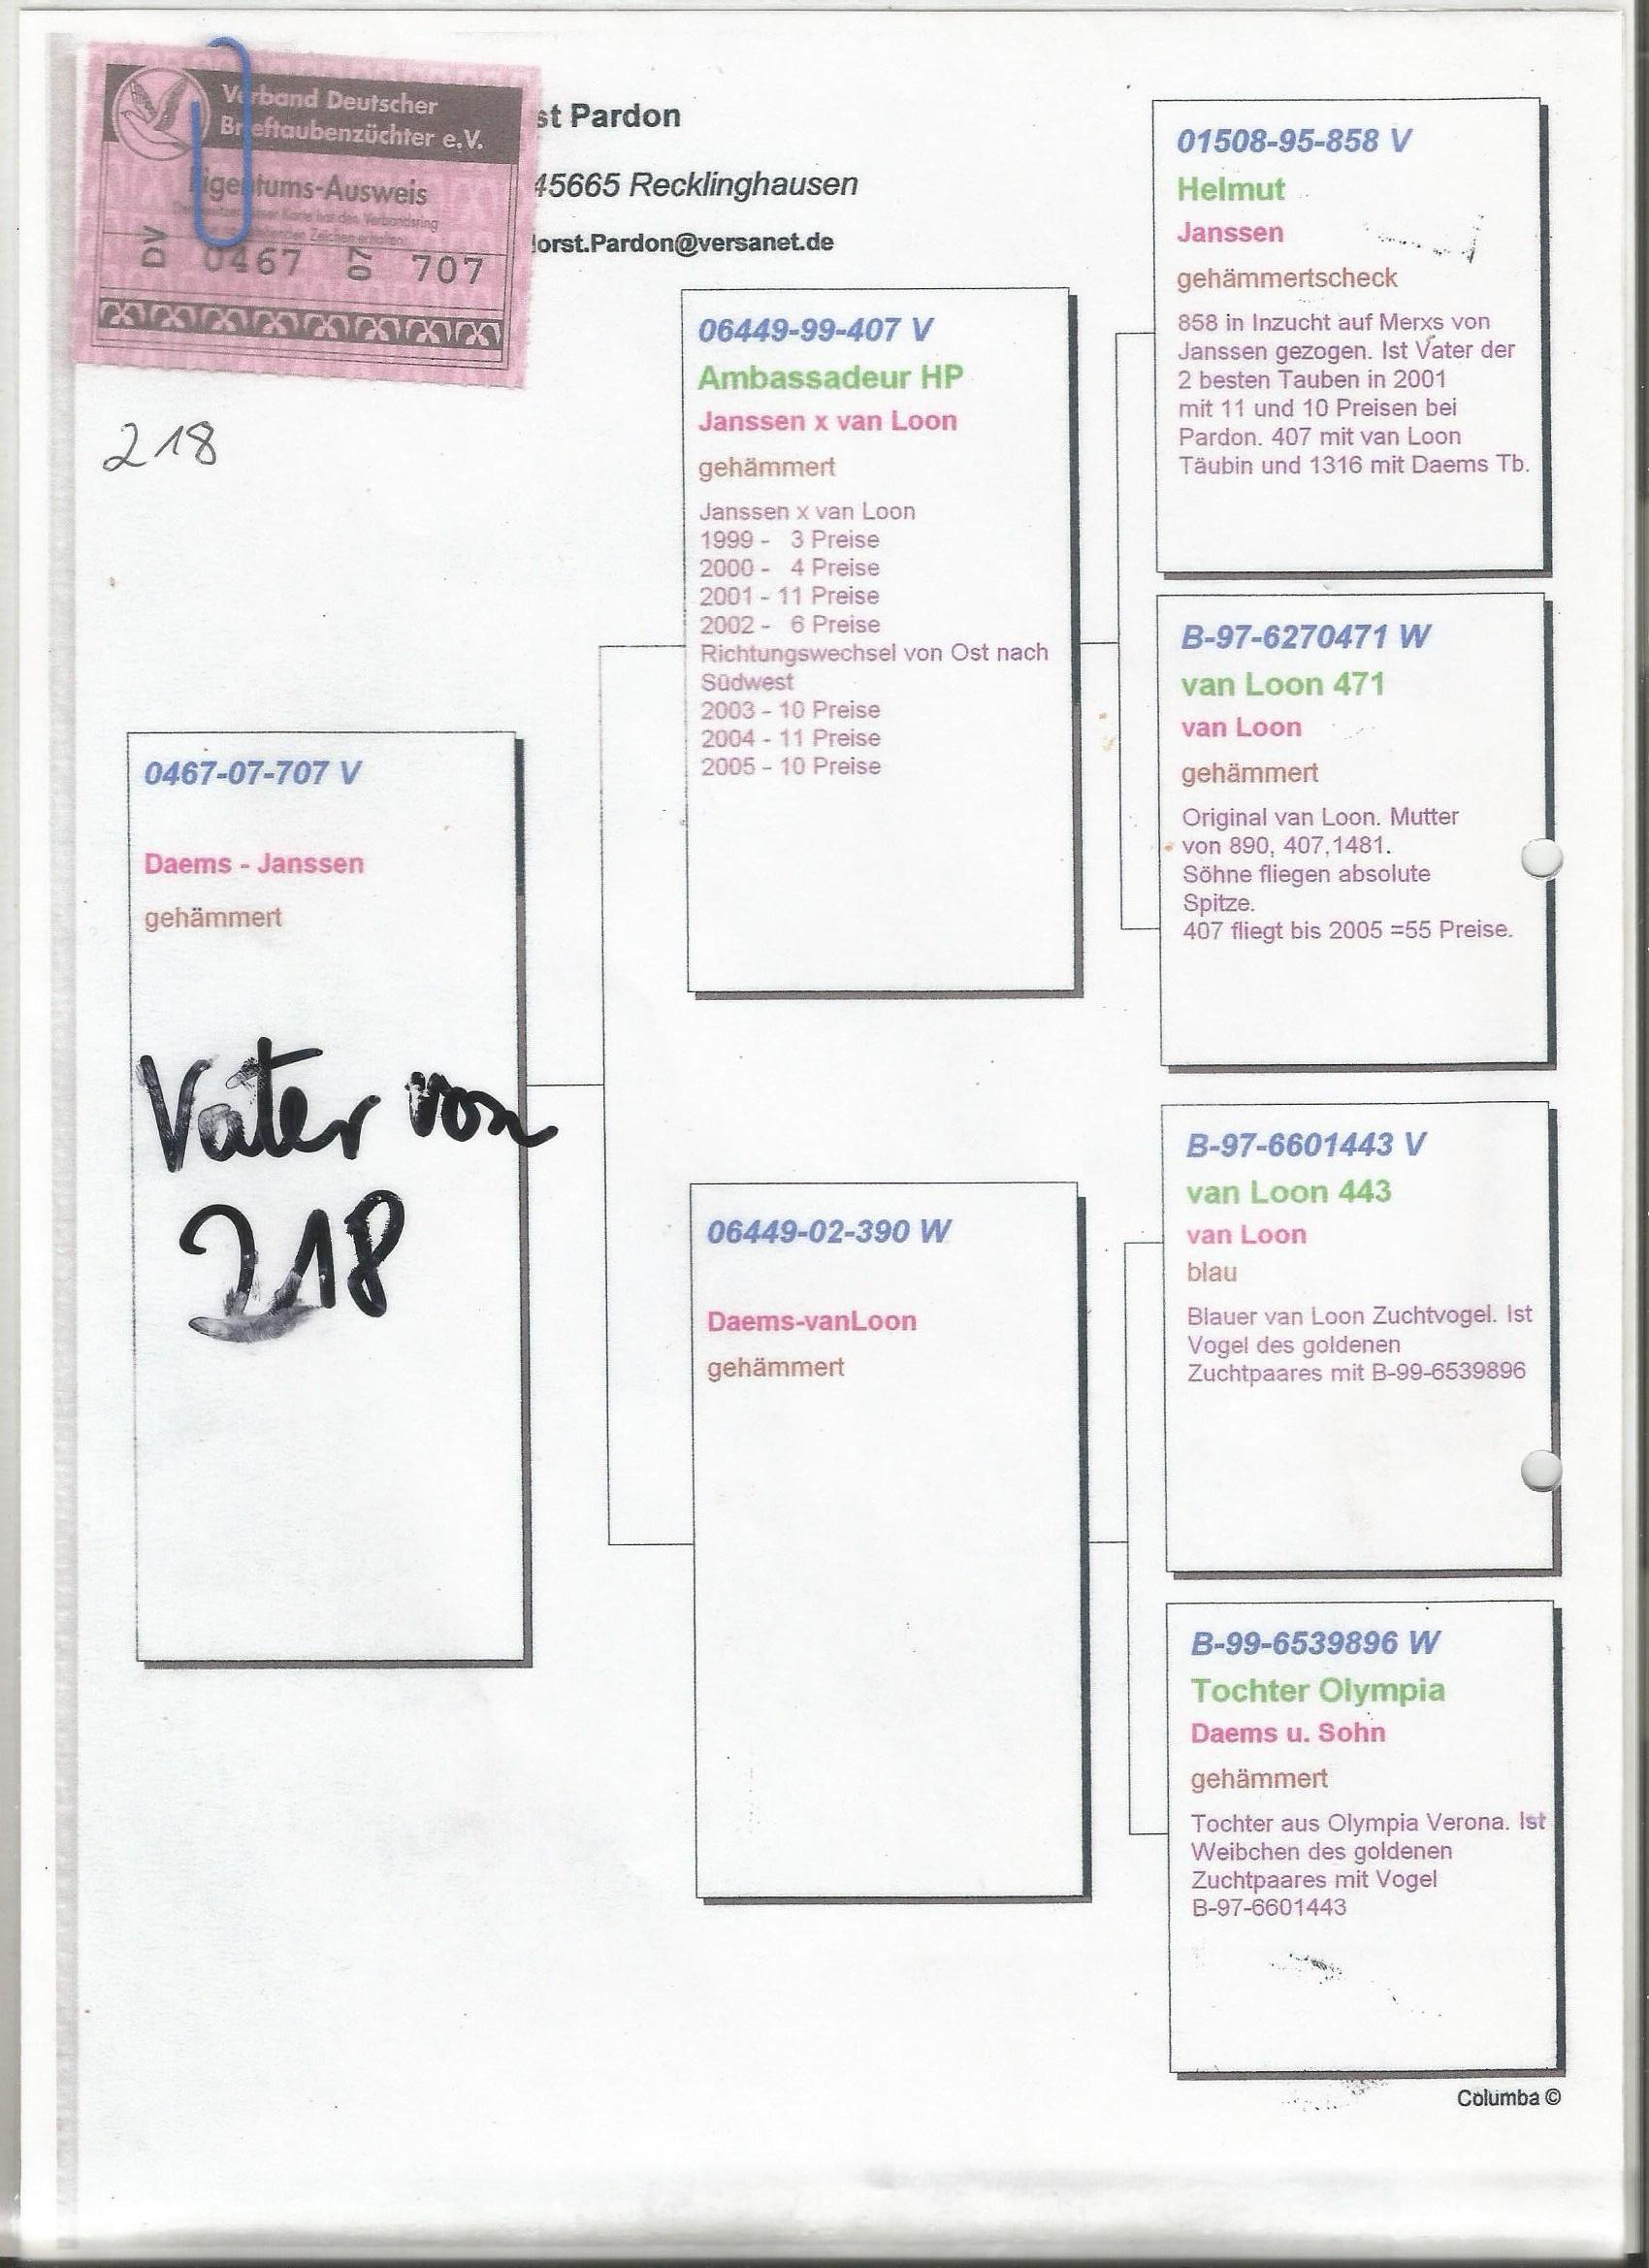 Verband Deutscher
Brieftaubenzüchter e.V.
Eigentums-Ausweis
DV 0467 07 707
st Pardon
45665 Recklinghausen
orst.Pardon@versanet.de
218
0467-07-707 V
Daems - Janssen
gehämmert
Vater von
218
06449-99-407 V
Ambassadeur HP
Janssen x van Loon
gehämmert
Janssen x van Loon
1999 - 3 Preise
2000 - 4 Preise
2001 - 11 Preise
2002 - 6 Preise
Richtungswechsel von Ost nach
Südwest
2003 - 10 Preise
2004 - 11 Preise
2005 - 10 Preise
06449-02-390 W
Daems-vanLoon
gehämmert
01508-95-858 V
Helmut
Janssen
gehämmertscheck
858 in Inzucht auf Merxs von
Janssen gezogen. Ist Vater der
2 besten Tauben in 2001
mit 11 und 10 Preisen bei
Pardon. 407 mit van Loon
Täubin und 1316 mit Daems Tb.
B-97-6270471 W
van Loon 471
van Loon
gehämmert
Original van Loon. Mutter
von 890, 407,1481.
Söhne fliegen absolute
Spitze.
407 fliegt bis 2005 =55 Preise.
B-97-6601443 V
van Loon 443
van Loon
blau
Blauer van Loon Zuchtvogel. Ist
Vogel des goldenen
Zuchtpaares mit B-99-6539896
B-99-6539896 W
Tochter Olympia
Daems u. Sohn
gehämmert
Tochter aus Olympia Verona. Ist
Weibchen des goldenen
Zuchtpaares mit Vogel
B-97-6601443
Columba ©